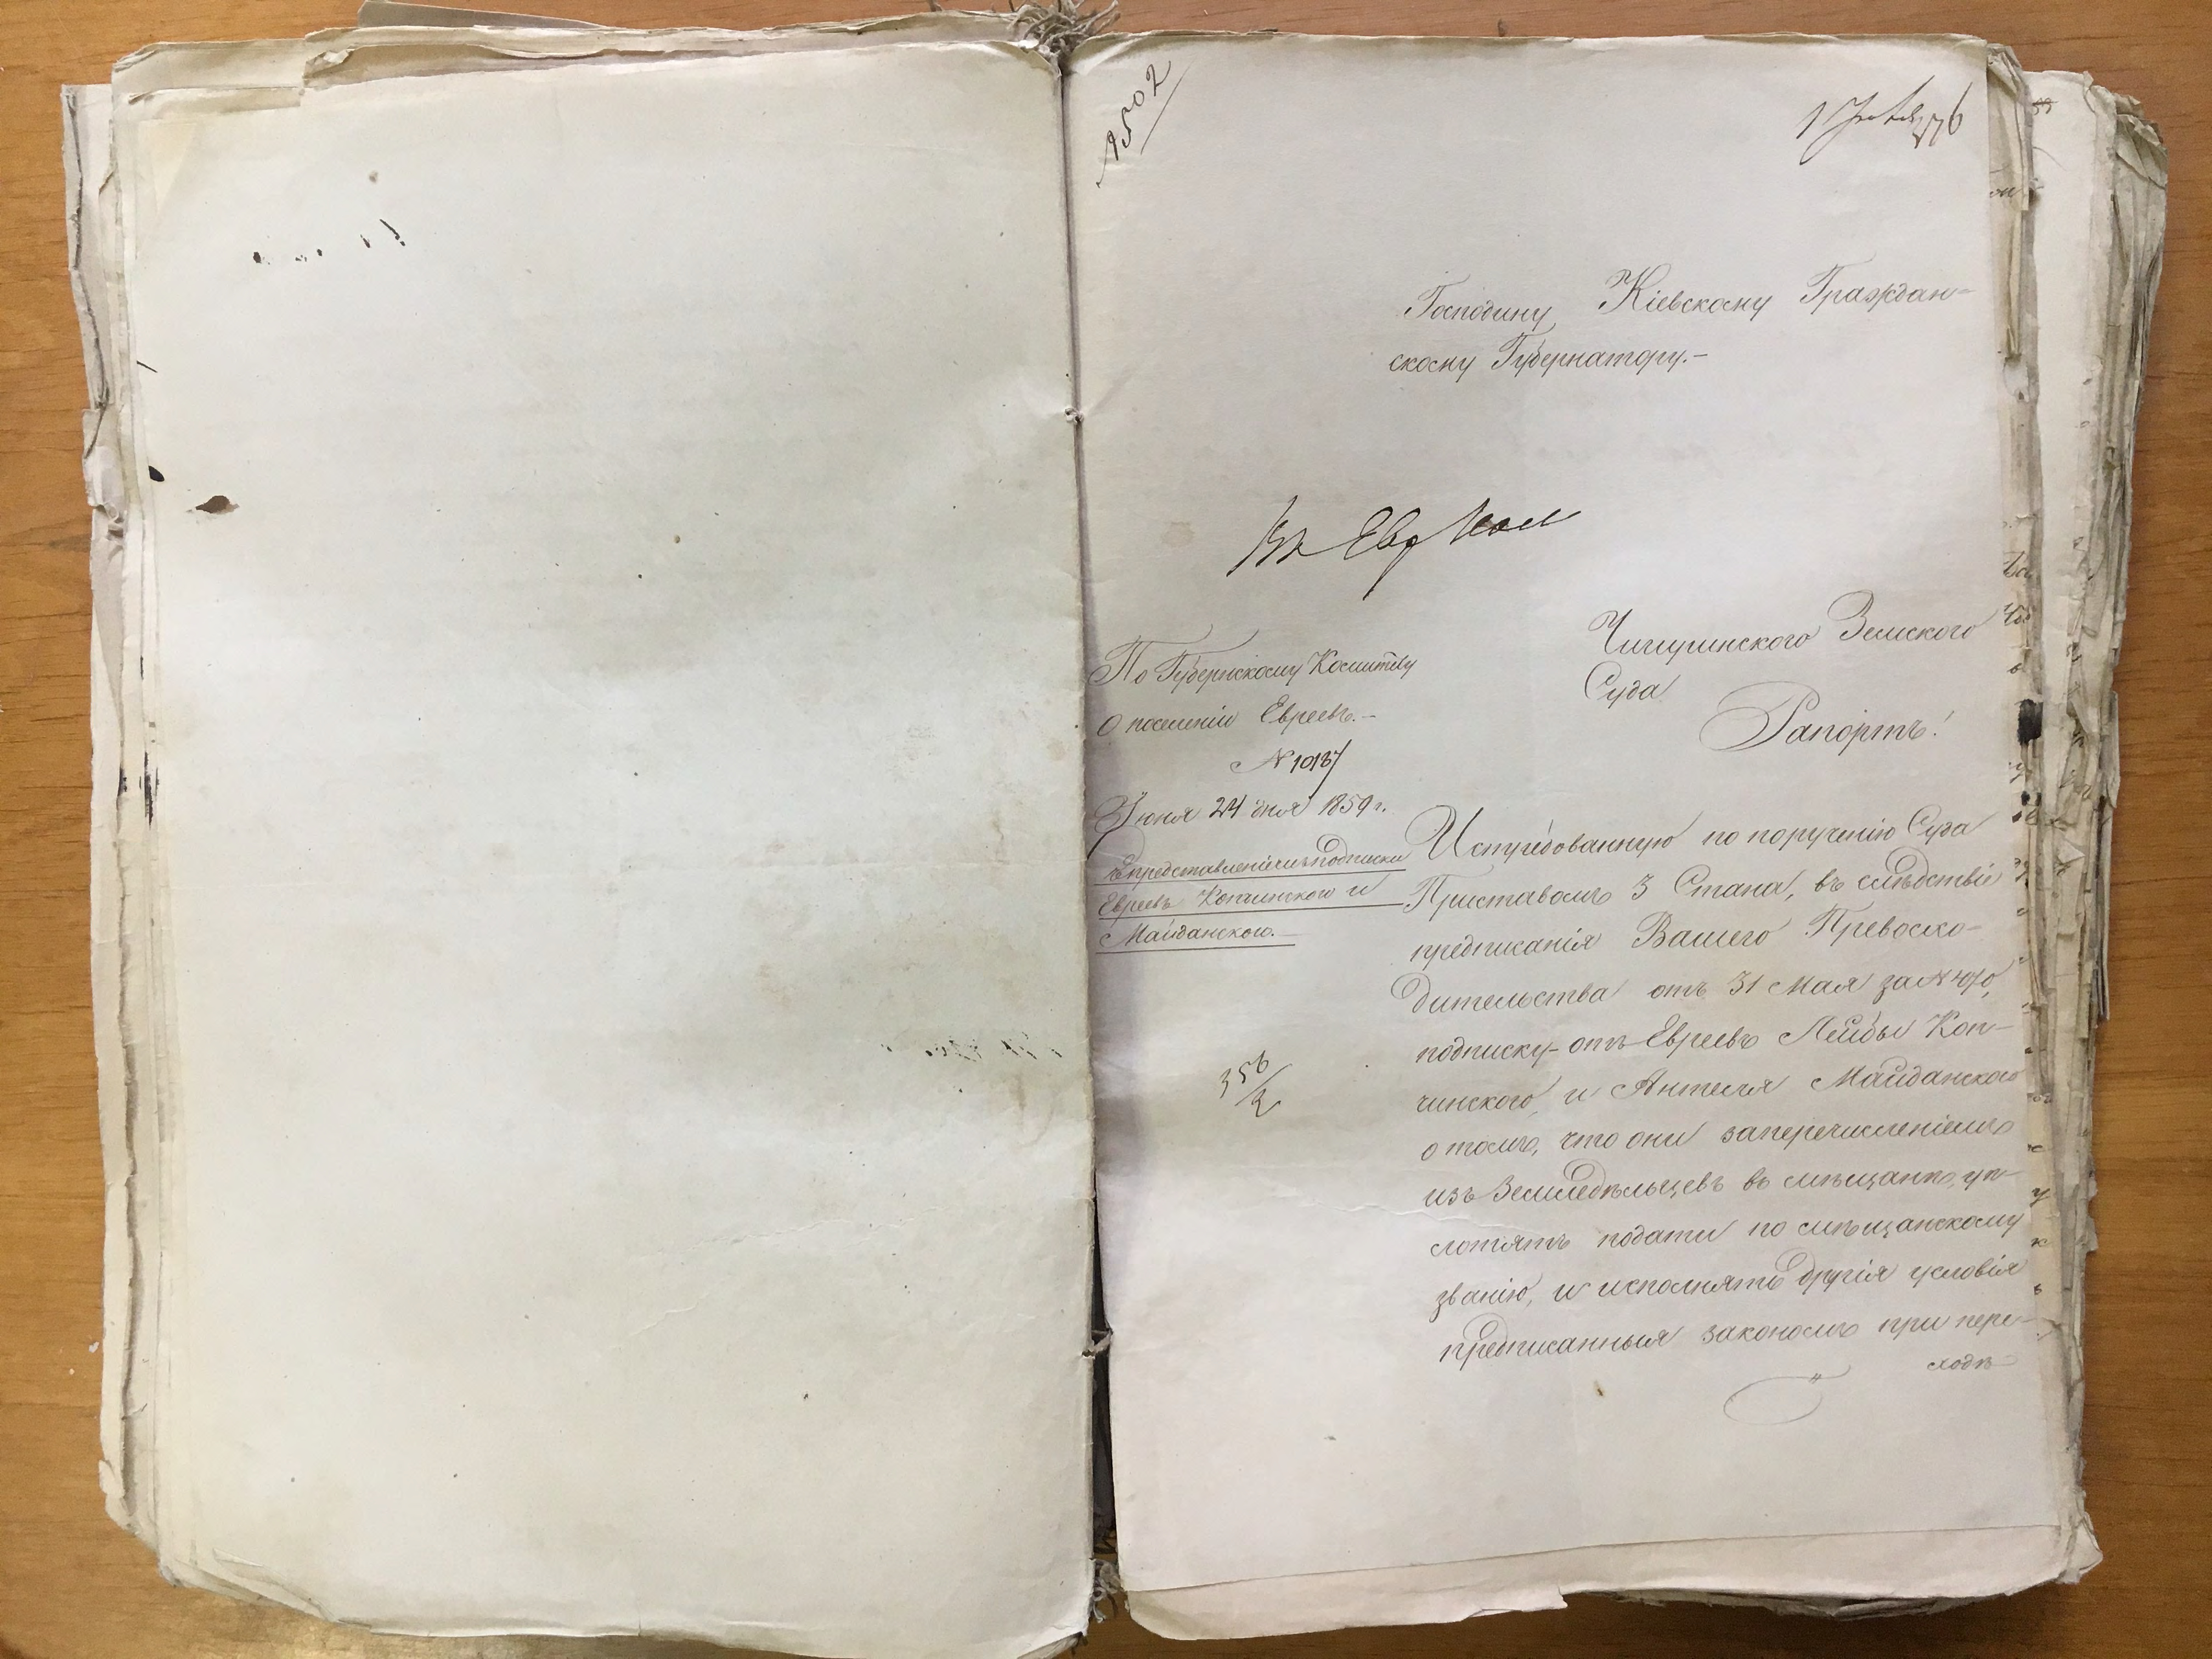 9502
176
Господину Кіевскому Граждан-
скому Губернатору.-
Въ Евр Ком
По Губернскому Комитету
О поселеніи Евреевъ.-
№ 10187
Іюня 24 дня 1859 г.
Съ представленіемъ подписки
Евреевъ Копчинского и
Майданского.-
356/2
Чигиринского Земского
Суда
Рапортъ!
Истребованную по порученію Суда
Приставомъ 3 Стана, въ слѣдствіе
предписанія Вашего Превосхо-
дительства отъ 31 Мая за №
подписку отъ Евреевъ Лейбы Коп-
чинского, и Антеля Майданского
о томъ, что они за перечисленіемъ
изъ Земледѣльцевъ въ мѣщане, уп-
лотятъ подати по мѣщанскому
званію, и исполнятъ другія условія
предписанныя закономъ при пере-
ходѣ